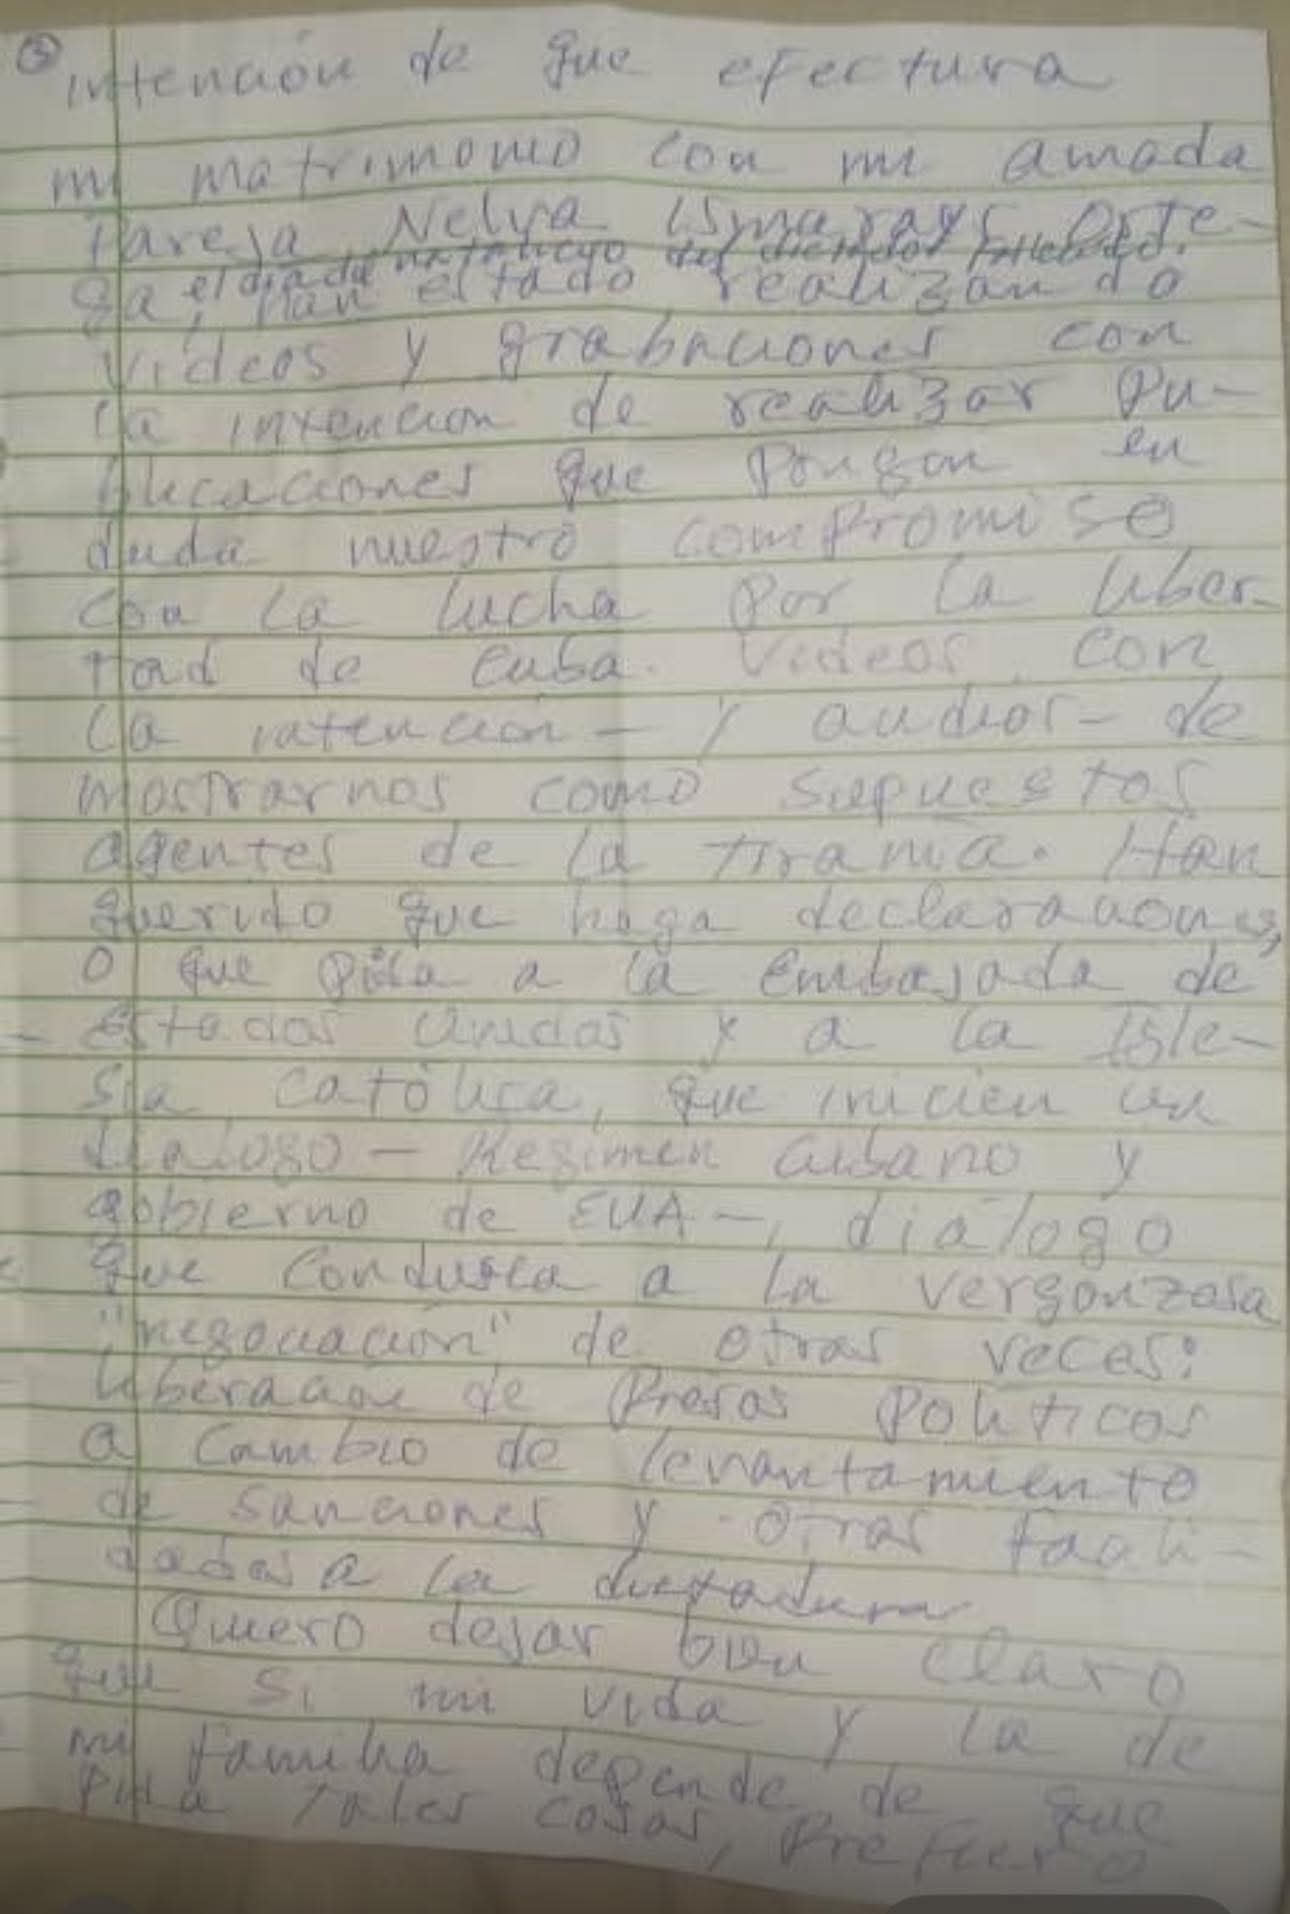 ③ intención de que efectura
mi matrimonio con mi amada
Pareja Nelva Ismarays Orte-
el día de natalicio del dictador fallecido.
ga, han estado realizando
videos y grabaciones con
la intención de realizar Pu-
blicaciones que Pongan en
duda nuestro compromiso
con la lucha Por la liber-
tad de Cuba. Videos con
la intención - y audios - de
mostrarnos como supuestos
agentes de la tiranía. Han
querido que haga declaraciones,
o que Pida a la embajada de
Estados Unidos y a la Igle-
sia católica, que inicien un
dialogo - Regimen cubano y
gobierno de EUA -, dialogo
que condusca a la vergonzosa
"negociación" de otras veces:
liberacion de Presos Politicos
a cambio de levantamiento
de sanciones y otras facili-
dades a la dictadura
Quiero dejar bien claro
que si mi vida y la de
mi familia depende de que
Pida tales cosas, Prefiero